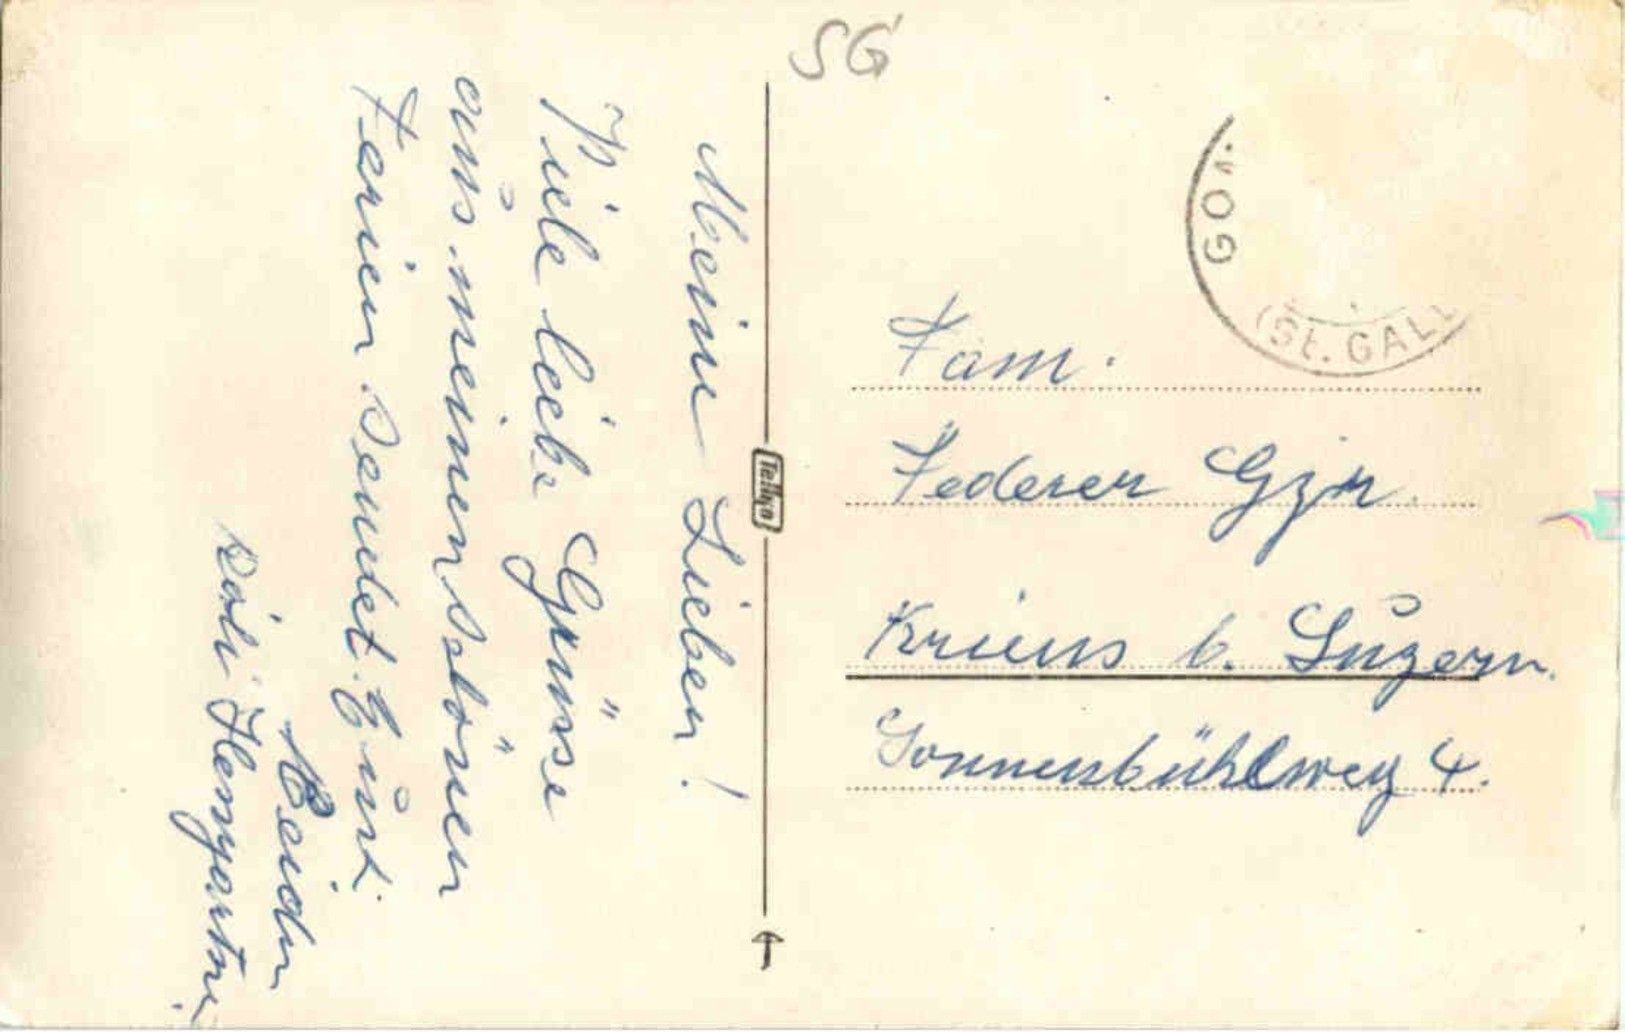 SG
Meine Lieben!
Viele liebe Grüsse
aus meinen schönen
Ferien sendet Euch
Heidi
Hemgartner
Tellko
GOM
(St. GALL
Fam.
Federer Gzr.
Kriens b. Luzern.
Sonnenbühlweg 4.